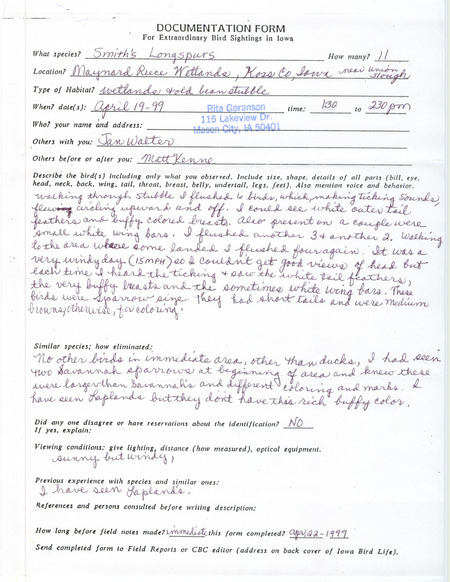 DOCUMENTATION FORM
For Extraordinary Bird Sightings in Iowa
What species? Smith's Longspurs How many? 11
Location? Maynard Reece Wetlands, Koss Co, Iowa near Union Slough
Type of Habitat? wetlands + old bean stubble
When? date(s): April 19-99 time: 130 to 230 pm
Rita Goranson
115 Lakeview Dr.
Mason City, IA 50401
Who? your name and address:
Others with you: Jan Walter
Others before or after you: Matt Kenne
Describe the bird(s) including only what you observed. Include size, shape, details of all parts (bill, eye,
head, neck, back, wing, tail, throat, breast, belly, undertail, legs, feet). Also mention voice and behavior.
Walking through stubble I flushed 6 birds, which, making ticking sounds,
flew circling upward and off. I could see white outer tail
feathers and buffy colored breasts. Also present on a couple were
small white wing bars. I flushed another 3 + another 2. Walking
to the area where some landed I flushed four again. It was a
very windy day (15 MPH) so I couldn't get good views of head but
each time I heard the ticking + saw the white tail feathers,
the very buffy breasts and the sometimes white wing bars. These
birds were sparrow size. They had short tails and were medium
browns, otherwise, for coloring.
Similar species; how eliminated:
No other birds in immediate area, other than ducks, I had seen
two Savannah sparrows at beginning of area and knew these
were larger than Savannah's and different coloring and marks. I
have seen Laplands but they dont have this rich buffy color.
Did any one disagree or have reservations about the identification? NO
If yes, explain:
Viewing conditions: give lighting, distance (how measured), optical equipment.
sunny but windy,
Previous experience with species and similar ones:
I have seen Lapland's.
References and persons consulted before writing description:
How long before field notes made? immediate this form completed? Apr. 22-1999
Send completed form to Field Reports or CBC editor (address on back cover of Iowa Bird Life).